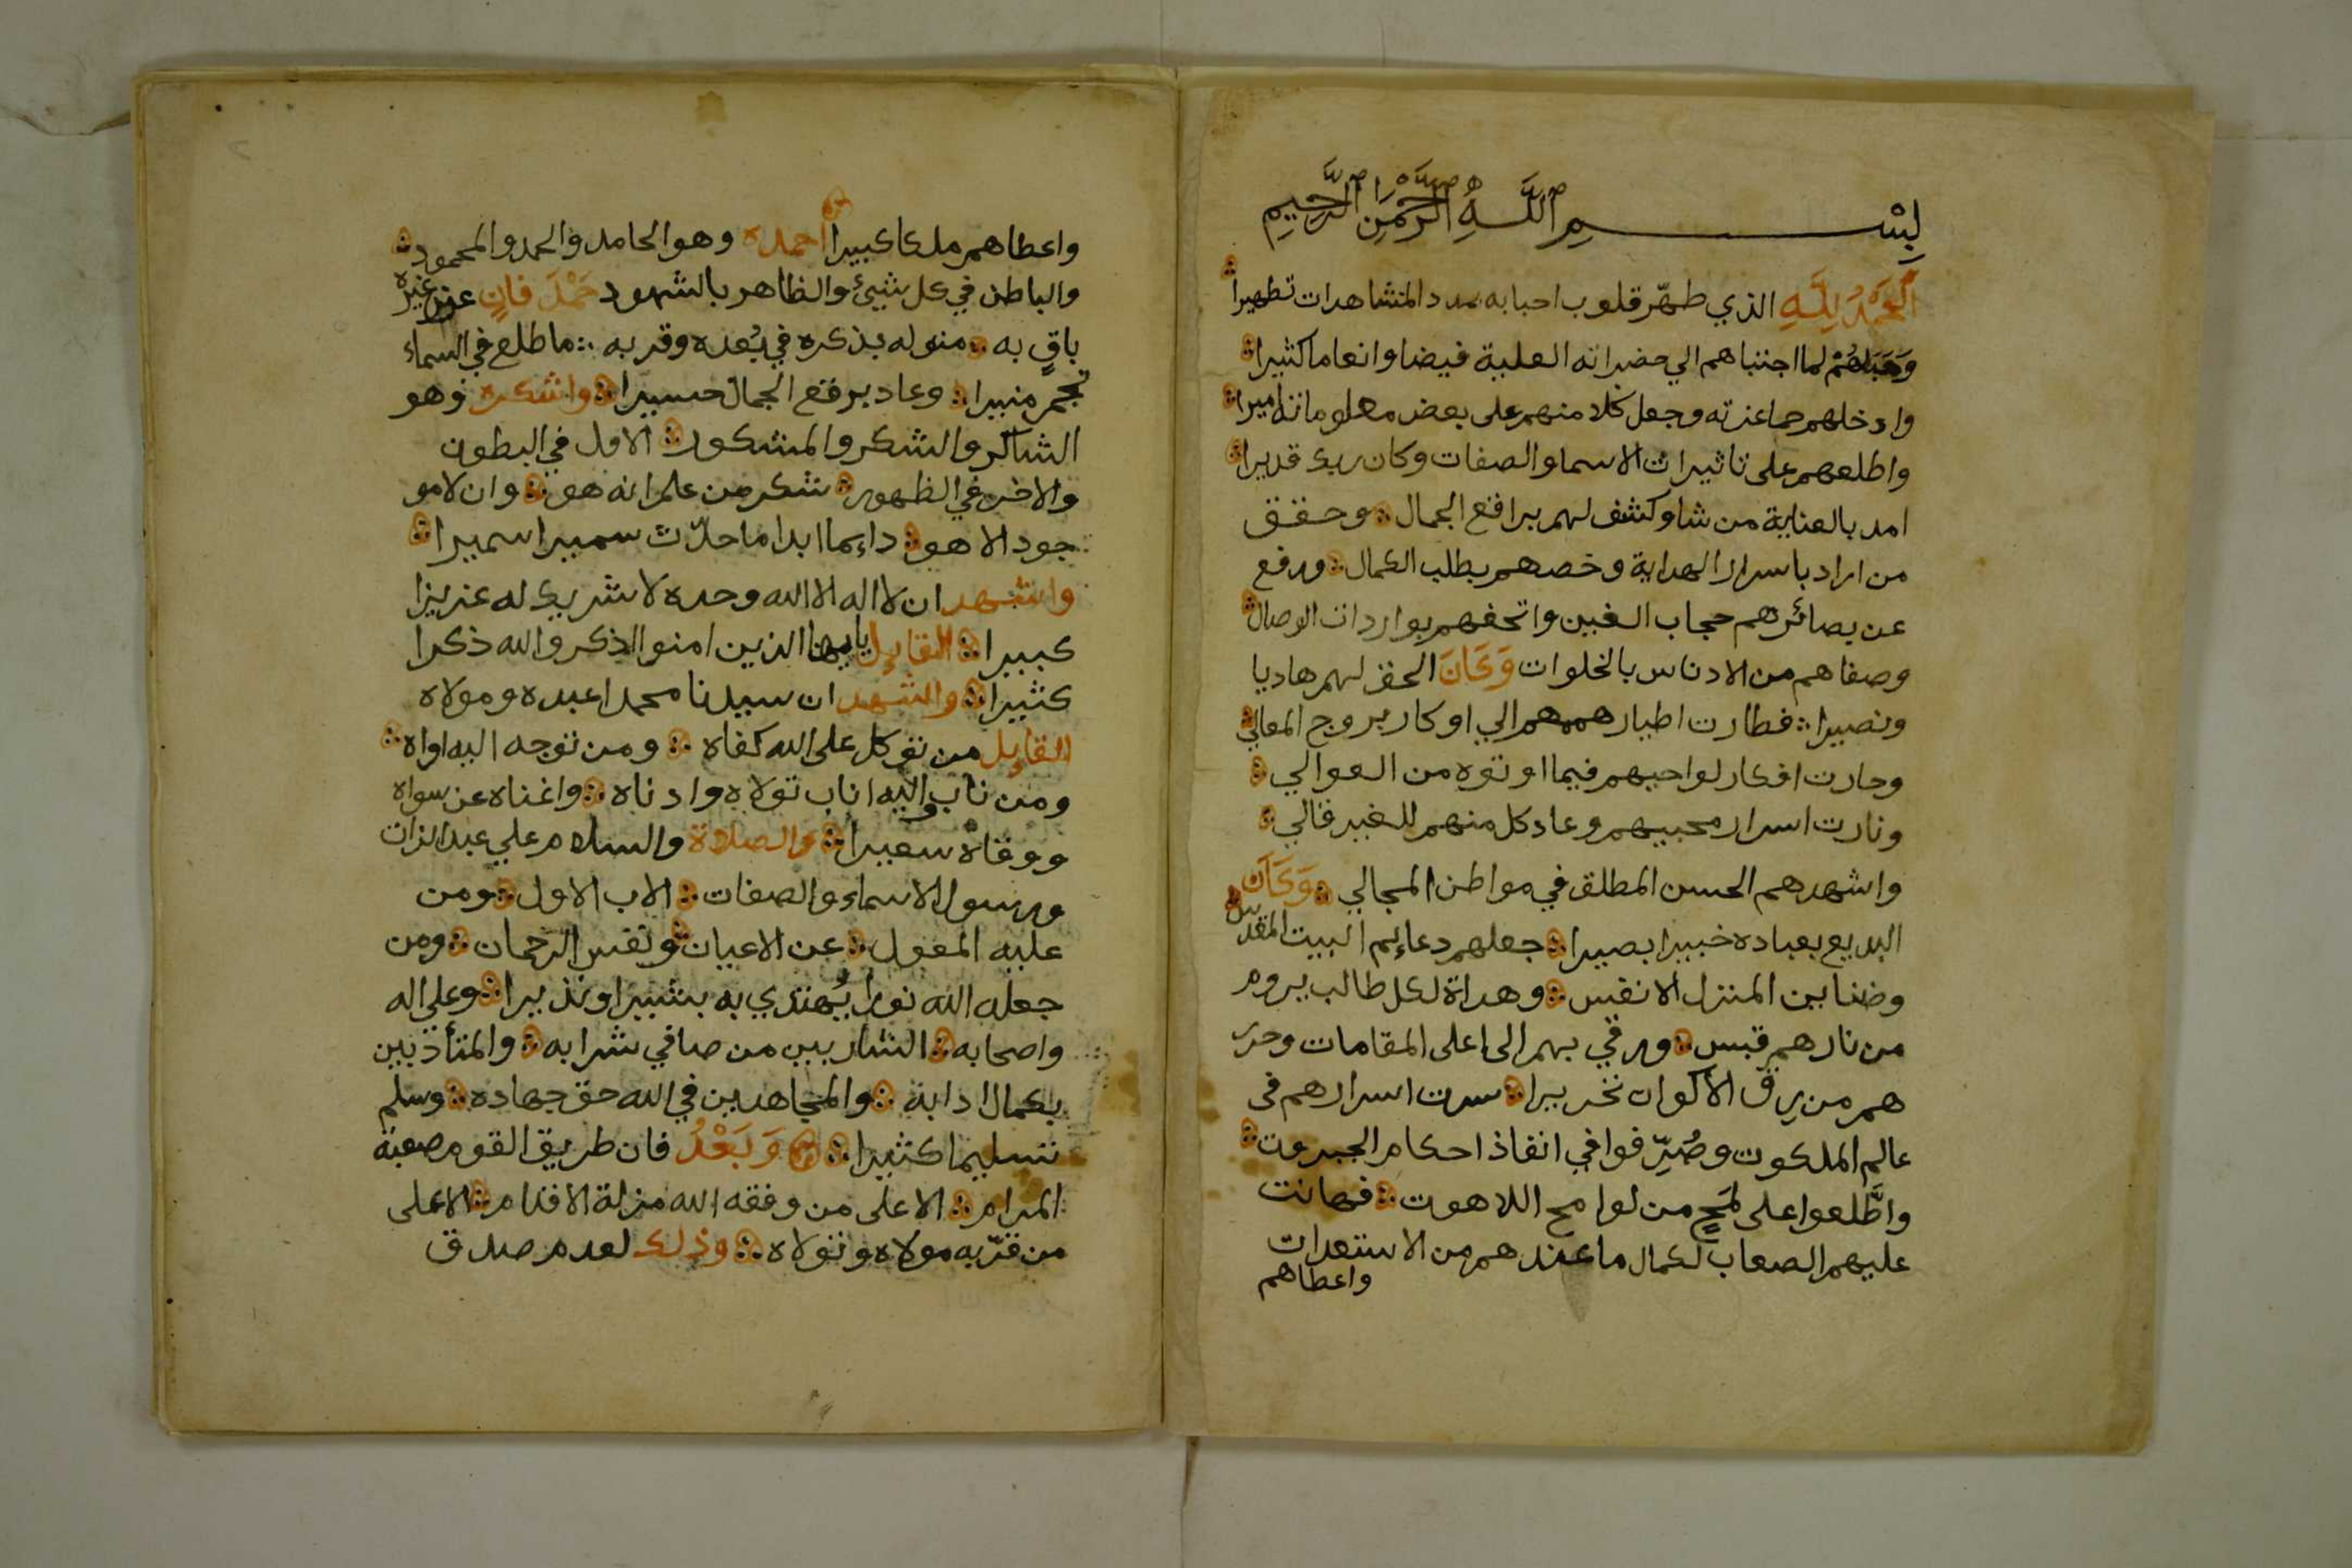 بِسْمِ اللَّهِ الرَّحْمَنِ الرَّحِيمِ
اَلْحَمْدُ لِلَّهِ الذي طهّر قلوب احبابه بمدد المشاهدات تطهيرا
وَهَبَهُمْ لما اجتباهم الي حضراته العلية فيضا وانعاما كثيرا
وادخلهم حما عزته وجعل كلا منهم على بعض معلوماته اميرا
واطلعهم على تاثيرات الاسما والصفات وكان ربك قديرا
امد بالعناية من شا وكشف لهم براقع الجمال وحقق
من اراد باسرار الهداية وخصهم بطلب الكمال ورفع
عن بصائرهم حجاب الغين واتحفهم بواردات الوصال
وصفاهم من الادناس بالخلوات وَكَانَ الحق لهم هاديا
ونصيرا فطارت اطيار هممهم الي اوكار بروج المعالي
وحارت افكار لواحيهم فيما اوتوه من العوالي
ونارت اسرار محبيهم وعاد كل منهم للغير قالي
واشهدهم الحسن المطلق في مواطن المجالي وَكَانَ
البديع بعباده خبيرا بصيرا جعلهم دعايم البيت المقدس
وضنا بين المنزل الانفس وهداة لكل طالب يروم
من نارهم قبس ورقي بهم الى اعلى المقامات وحرر
هم من رق الاكوان تحريرا سرت اسرارهم في
عالم الملكوت وصُرِّفوا في انفاذ احكام الجبروت
واطَّلعوا على لمحٍ من لوامح اللاهوت فهانت
عليهم الصعاب لكمال ما عندهم من الاستعدات
واعطاهم
واعطاهم ملكا كبيرا احمده وهو الحامد والحمد والمحمود
والباطن في كل شيئ والظاهر بالشهود حَمْدَ فانٍ عن غيره
باقٍ به منوله بذكره في بُعده وقربه ما طلع في السماء
نجم منيرا وعاد برقع الجمال حسيرا واشكره وهو
الشاكر والشكر والمشكور الاول في البطون
والاخر في الظهور شكر من علم انه هو وان لا مو
جود الا هو دايما ابدا ما حدّث سميرا سميرا
واشهد ان لا اله الا الله وحده لا شريك له عزيزا
كبيرا القايل يايها الذين امنوا اذكروا الله ذكرا
كثيرا واشهد ان سيدنا محمدا عبده ومولاه
القايل من توكل على الله كفاه ومن توجه اليه اواه
ومن ناب واليه اناب تولاه وادناه واغناه عن سواه
ووقاه سعيرا والصلاة والسلام علي عبد الذات
ورسول الاسماء والصفات الاب الاول ومن
عليه المعول عن الاعيان ونفس الرحمان ومن
جعله الله نورا يُهتدي به بشيرا ونذيرا وعلى اله
واصحابه الشاربين من صافي شرابه والمتأذبين
بكمال ادابه والمجاهدين في الله حق جهاده وسلم
تسليما كثيرا وَبَعْدُ فان طريق القوم صعبة
المرام الا على من وفقه الله مزلة الاقدام الا على
من قرّبه مولاه وتولاه وذلك لعدم صدق